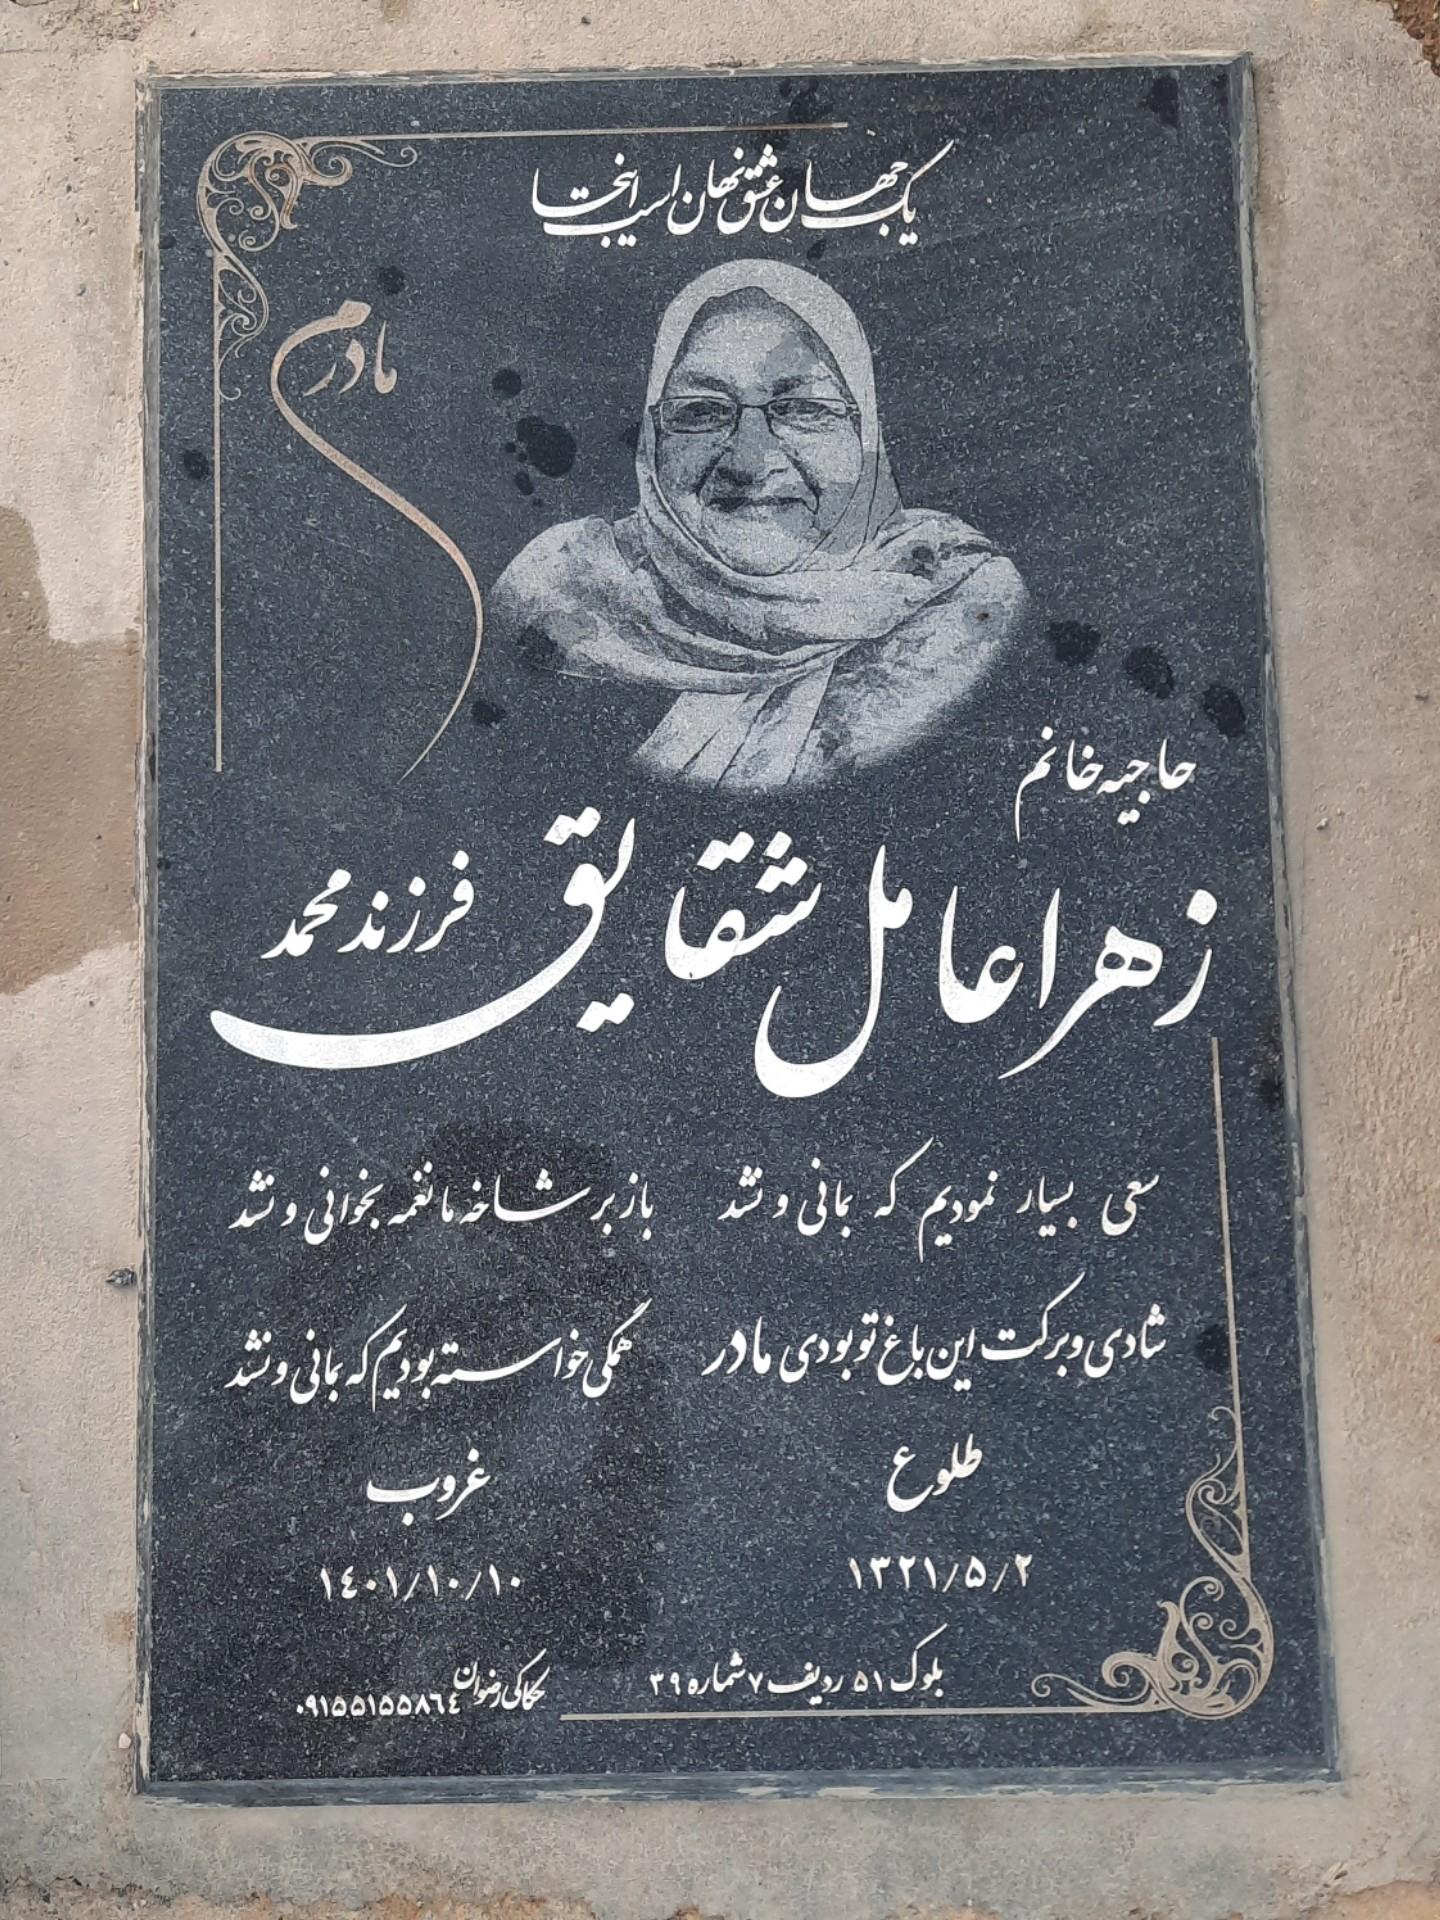 یک جهان عشق نهان است اینجا
مادرم
حاجیه خانم
زهرا عامل شقایق فرزند محمد
سعی بسیار نمودیم که بمانی و نشد باز بر شاخه ما نغمه بخوانی و نشد
شادی و برکت این باغ تو بودی مادر همگی خواسته بودیم که بمانی و نشد
طلوع غروب
۱۳۲۱/۵/۲ ۱٤۰۱/۱۰/۱۰
بلوک ۵۱ ردیف ۷ شماره ۳۹
حکاکی رضوان ۰۹۱۵۵۱۵۵۸۶٤